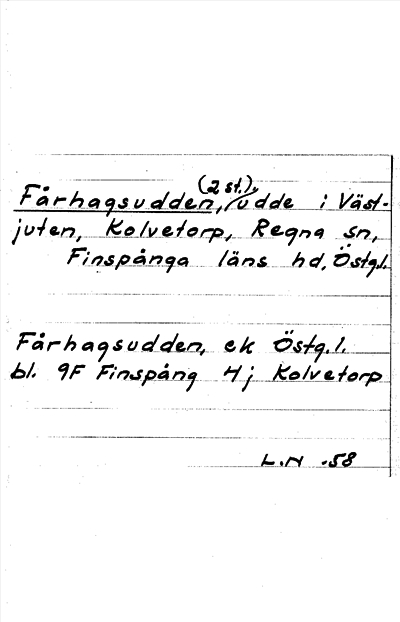 Fårhagsudden, (2 st.), udde i Väst-
juten, Kolvetorp, Regna sn,
Finspånga läns hd, Östg.l.
Fårhagsudden, ek Östg.l.
bl. 9F Finspång Hj Kolvetorp
L.N -58